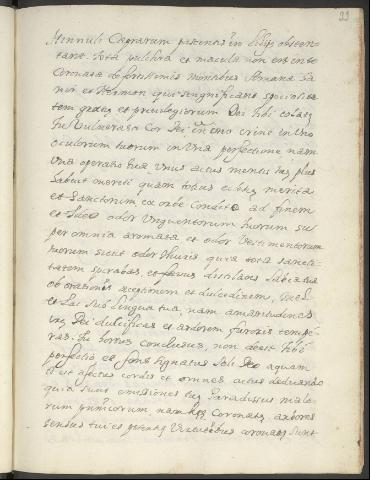 33
Hinnuli Caprarum pascentes in Lilijs obsten-
tant. tota pulchra et macula non est in te
Coronata de fortissimis montibus Amana Sa-
nir et Hermon qui significant specialita-
tem gratiæ et privilegiorum Dei tibi
Tu Vulnerasti Cor Dei in uno crine in Uno
oculorum tuorum in Una perfectione nam
Una operatio tua Unus actus mentis tuæ plus
habuit mereri quam totius merita
et Sanctorum, ex orbe Condito ad finem
et Ideo odor Unguentorum tuorum su-
per omnia aromata et odor Vestimentorum
tuorum sicut odor thuris quia tota sancti-
tatem et favus distilans labia tua
ob orationis et dulcedinem, Mel
et Lac sub lingua tua, nam amaritudines
Dei dulcificas et ardorem furoris tempe-
ras. tu hortus conclusus, non deest tibi
perfectio et fons signatus soli Deo aquam
et affectus cordis et omnes actus
quia sunt emissiones tuæ Paradissus malo-
rum punicorum, nam Coronatæ arbores
sensus tui et Virtutibus sunt